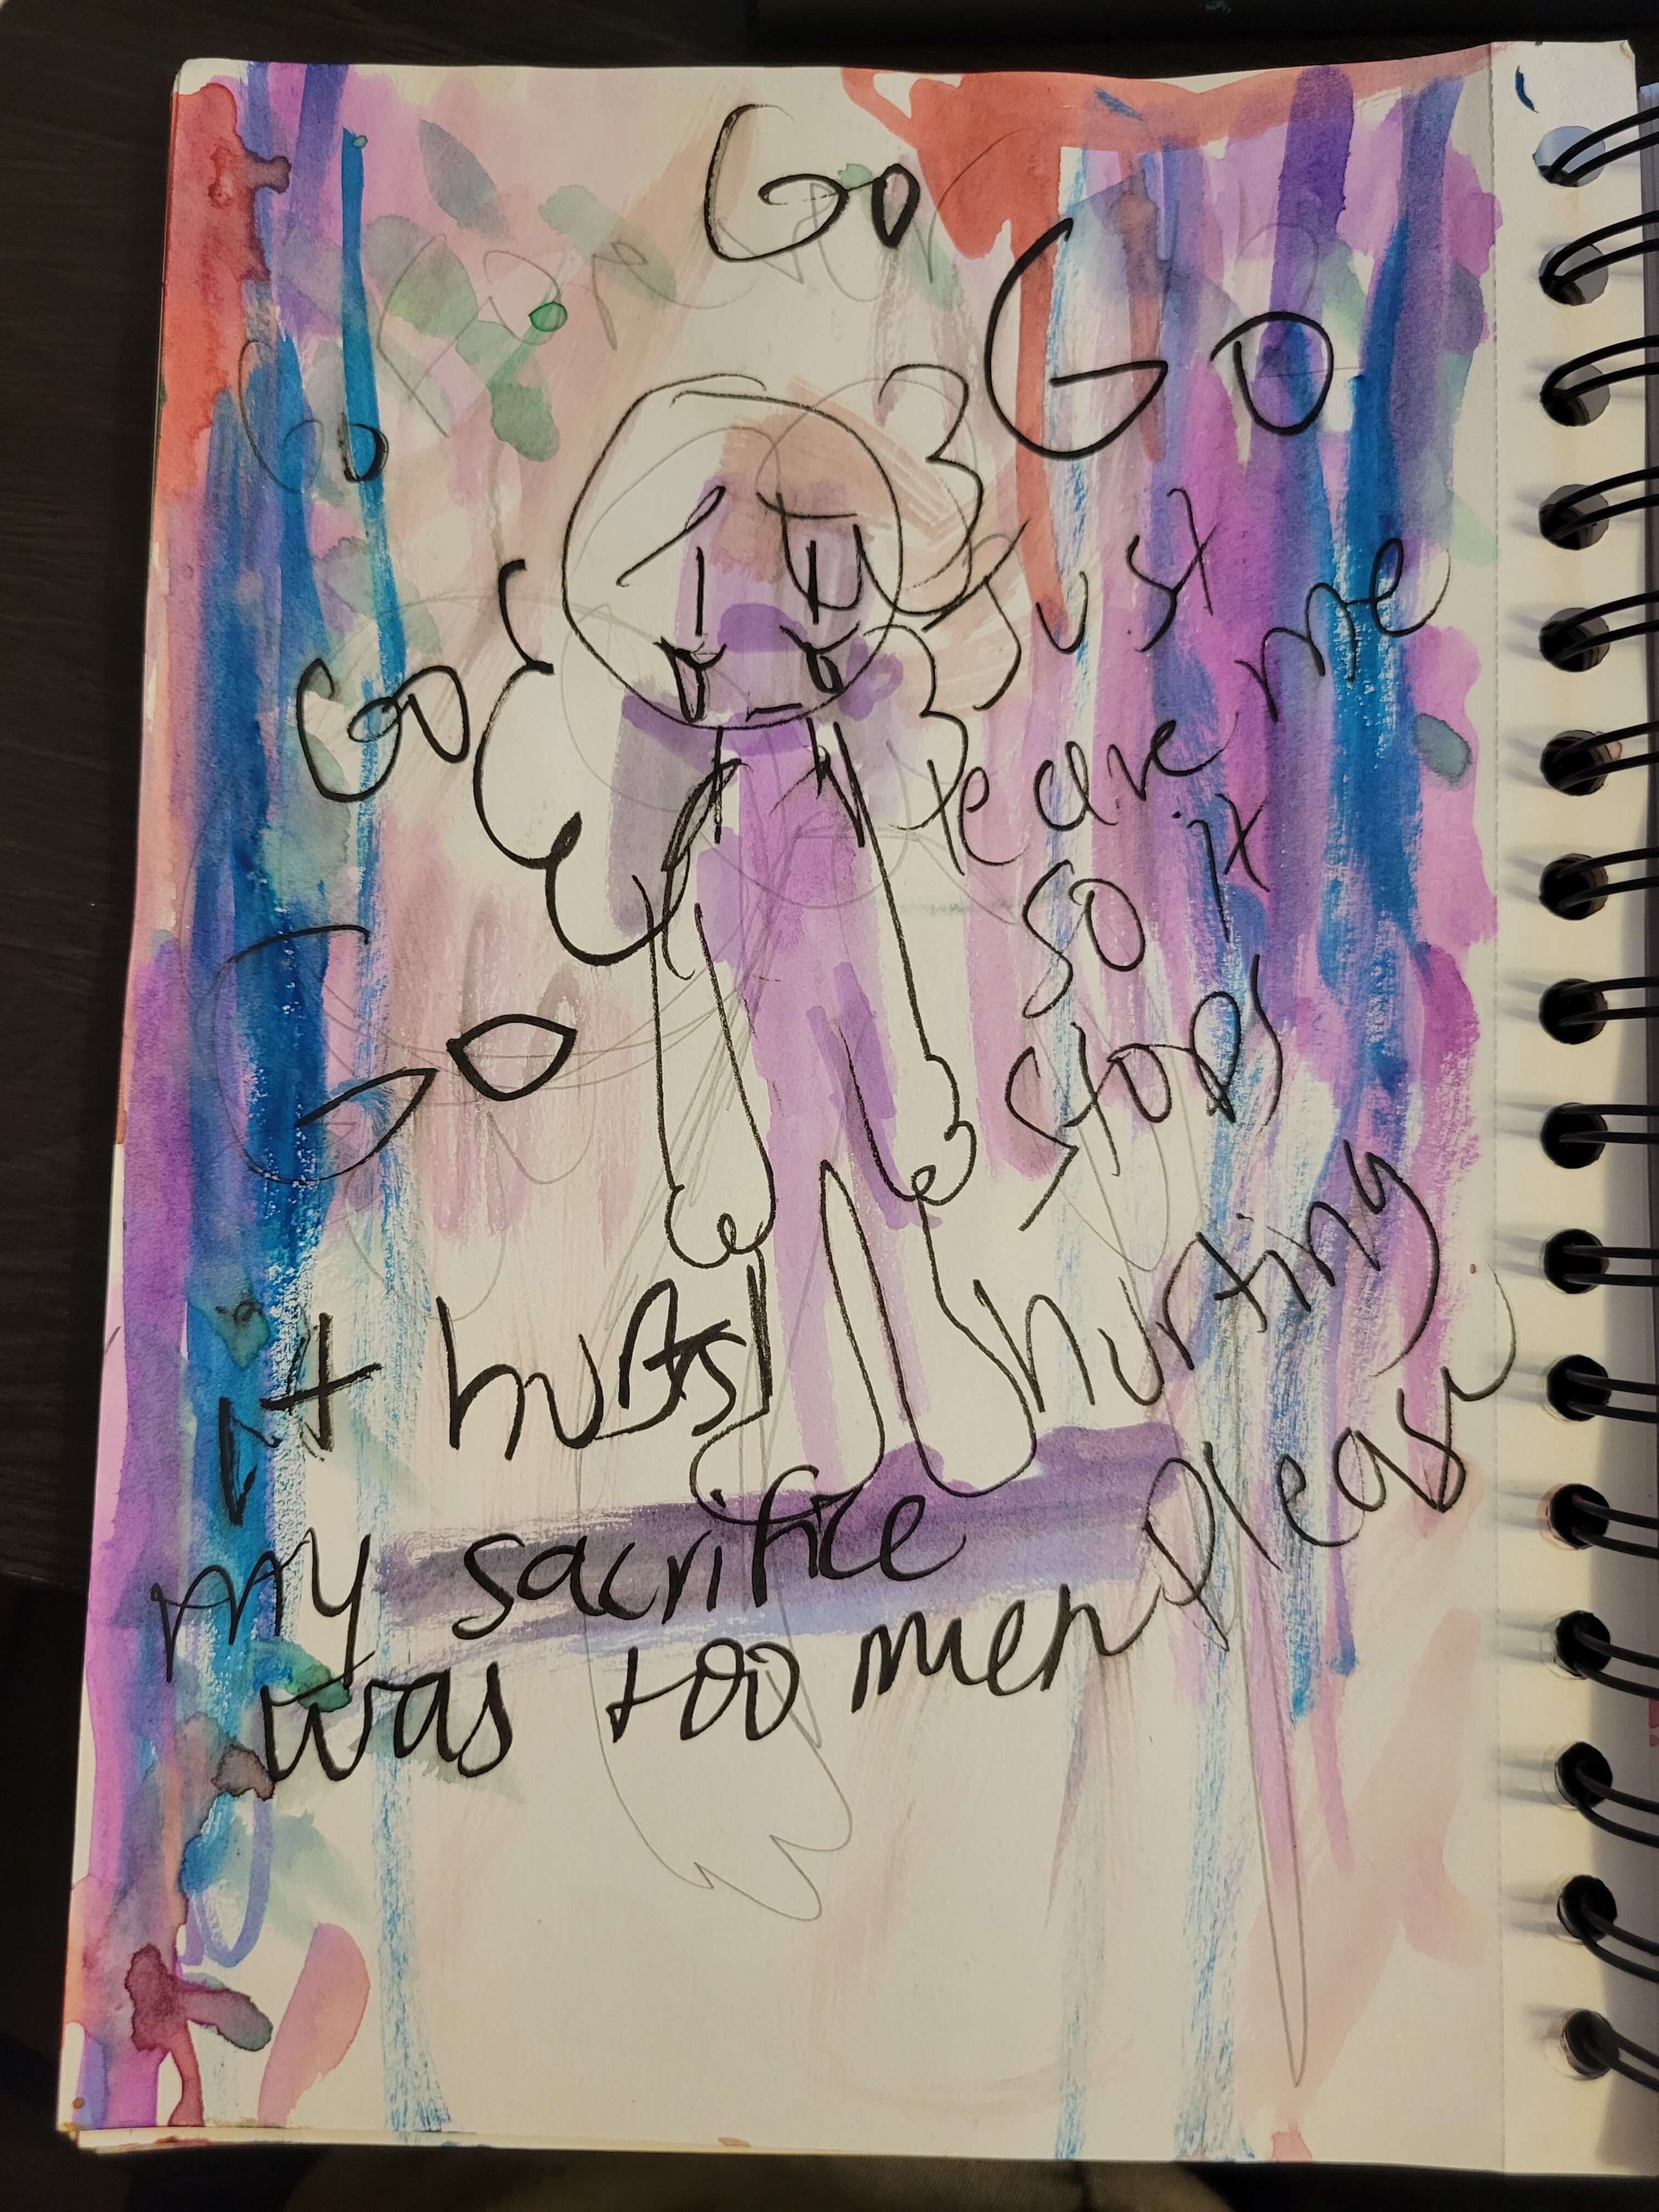 Go
Go
Go
Go
Go
Just
leave me
so it
stops
hurting
please
it hurts
my sacrifice
was too much